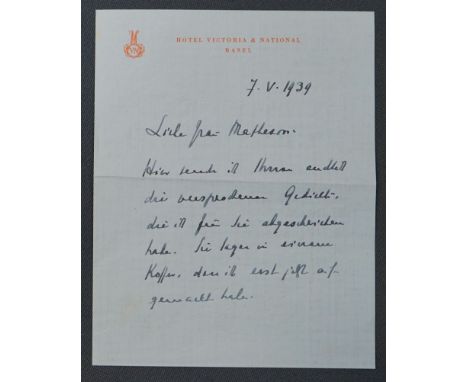 HOTEL VICTORIA & NATIONAL
BASEL
7. V. 1939
Liebe Frau Matheson.
Hier sende ich Ihnen endlich
die versprochenen Gedichte,
die ich für Sie abgeschrieben
habe. Sie lagen in einem
Koffer, den ich erst jetzt auf-
gemacht habe.